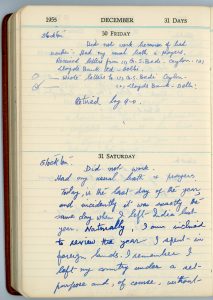 1955 DECEMBER 31 DAYS
30 FRIDAY
Stockton
Did not work because of bad
weather. Had my usual bath & prayers.
Received letters from (1) G.S. Bede - Ceylon - (2)
Lloyds Bank Ltd - Delhi.
Wrote letters to (1) G.S. Bede Ceylon -
(2) Lloyds Bank - Delhi.
Retired by 9-0.
31 SATURDAY
Stockton
Did not work
Had my usual bath & prayers
Today, is the last day of the year
and incidently it was exactly the
same day when I left India last
year. Naturally, I am inclined
to review the year I spent in
foreign lands. I remember I
left my country under a set
purpose and, of course, without